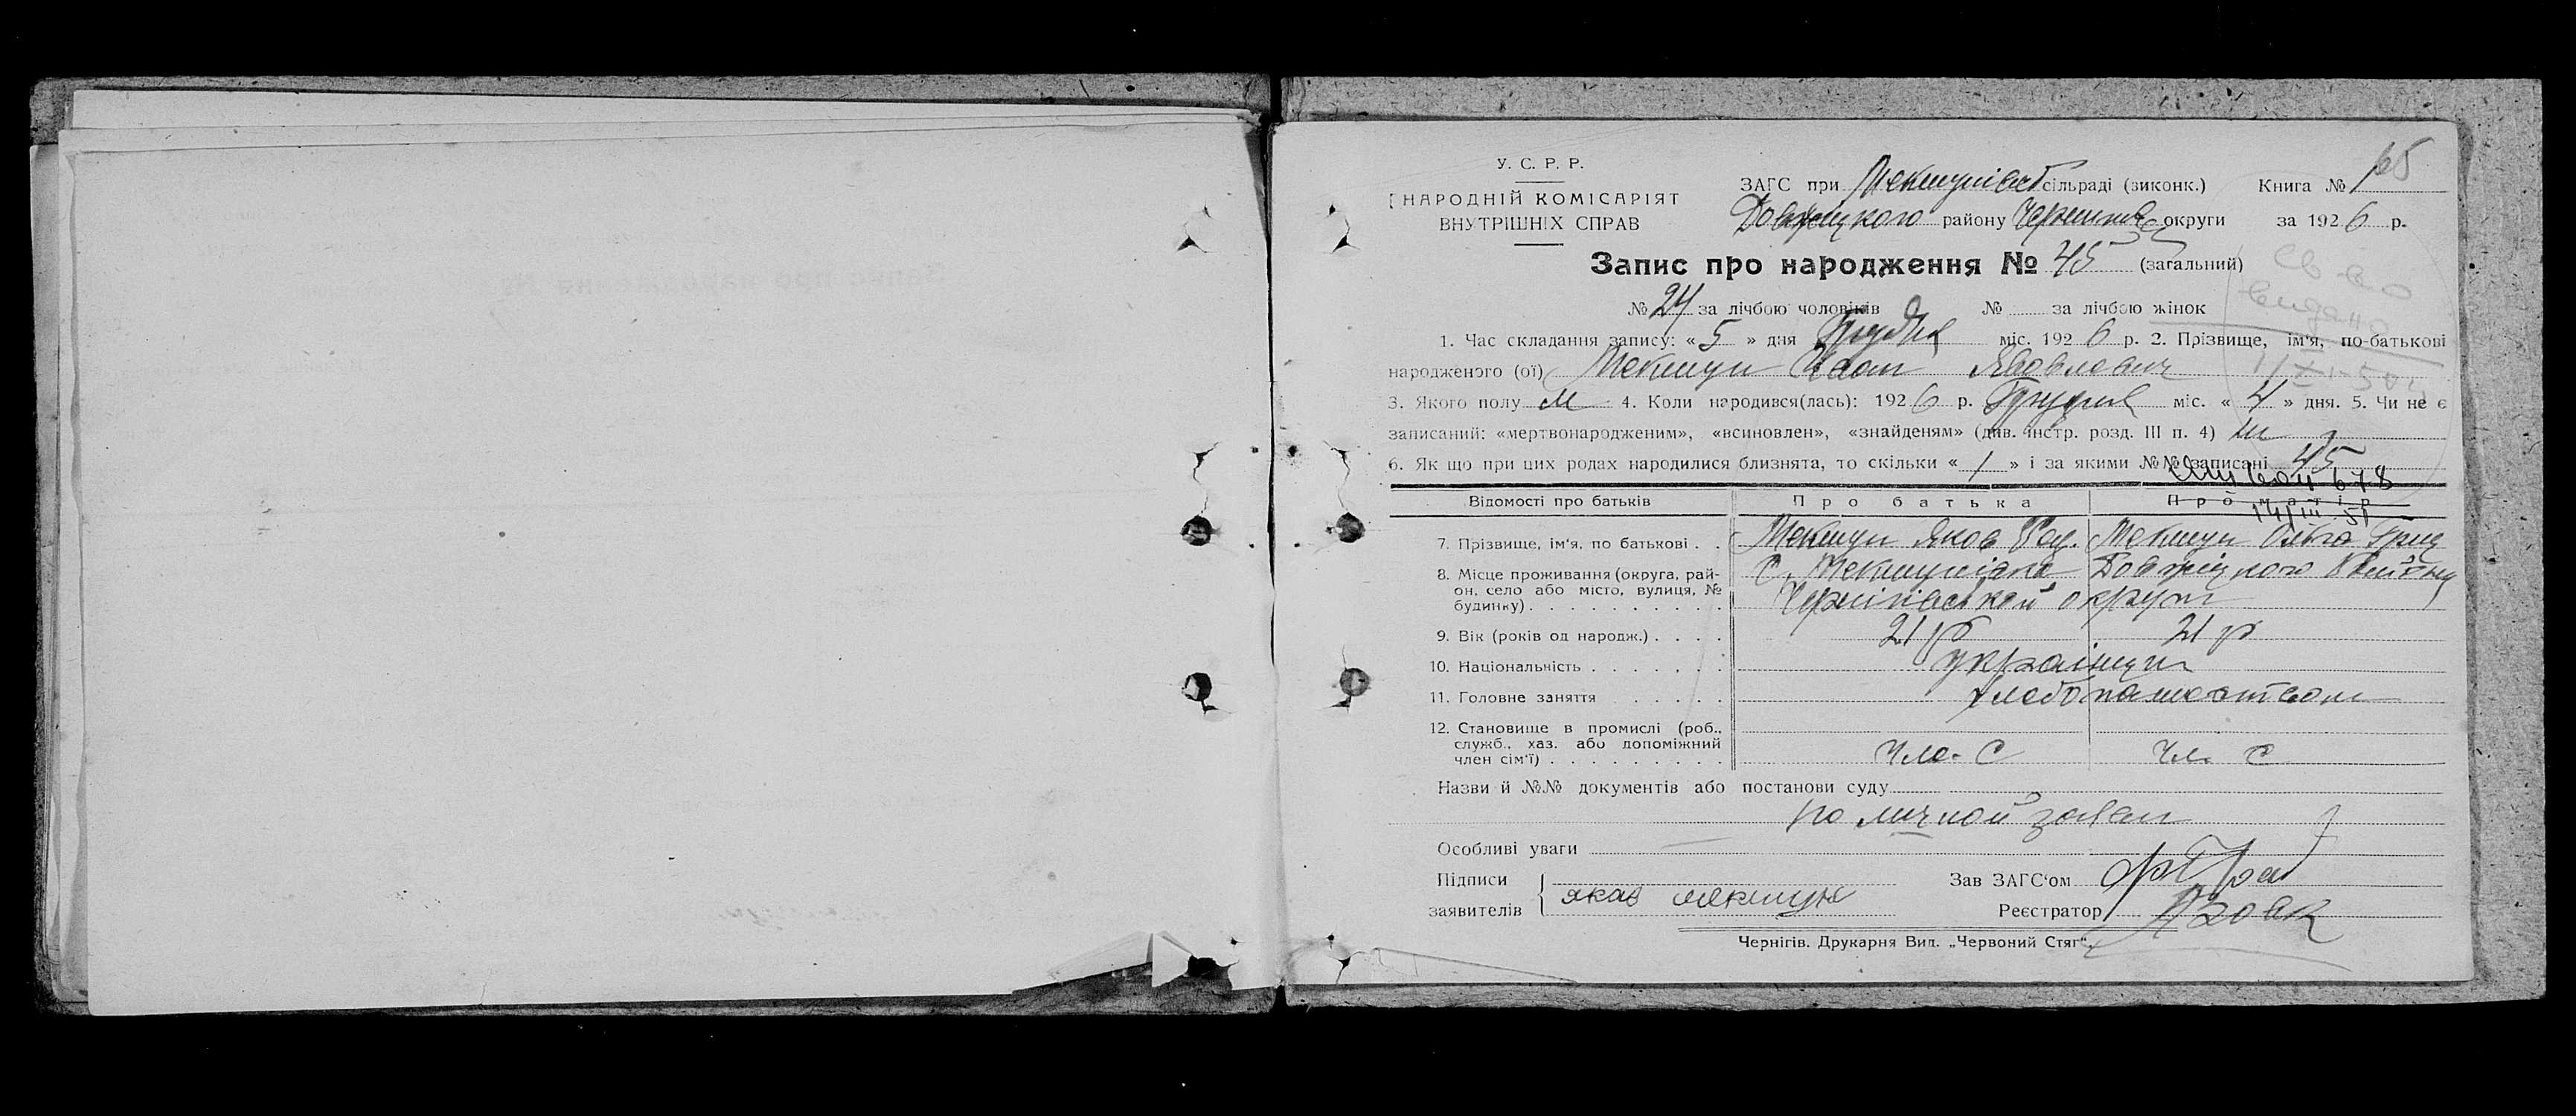 65
У. С. Р. Р.
НАРОДНІЙ КОМІСАРІЯТ
ВНУТРІШНІХ СПРАВ
ЗАГС при сільраді (виконк.) Книга № 1
Довжицького району Чернигов округи за 1926 р.
Запис про народження № 45 (загальний)
Св-во
видано
№ 24 за лічбою чоловіків № за лічбою жінок
1. Час складання запису: « 5 » дня Грудня міс. 1926 р. 2. Прізвище, ім'я, по-батькові
народженого (ої) Мекшун Іван Яковлович
3. Якого полу м 4. Коли народився(лась): 1926 р. Грудня міс. « 4 » дня. 5. Чи не є
записаний: «мертвонародженим», «всиновлен», «знайденям» (див. інстр. розд. III п. 4) ні
6. Як що при цих родах народилися близнята, то скільки « 1 » і за якими №№ записані 45
678
Відомості про батьків Про батька Про матір
14/III 51
7. Прізвище, ім'я, по батькові . . Мекшун Яков Мекшун Ольга Григ
8. Місце проживання (округа, рай-
он, село або місто, вулиця, №
будинку) . . . . . . . . . .
С. Мекшунівка Довжицкого району
Чернігівськой округи
9. Вік (років од народж.) . . . . 21 р 21 р
10. Національність . . . . . . . українци
11. Головне заняття . . . . . хлебопашеством
12. Становище в промислі (роб.,
служб., хаз. або допоміжний
член сім'ї) . . . . . . . . . чле. С чл. С
Назви й №№ документів або постанови суду
по личной заяви
Особливі уваги —
Підписи
заявителів
якав мекшун
Зав ЗАГС'ом
Реєстратор
Чернігів. Друкарня Вид. „Червоний Стяг“.